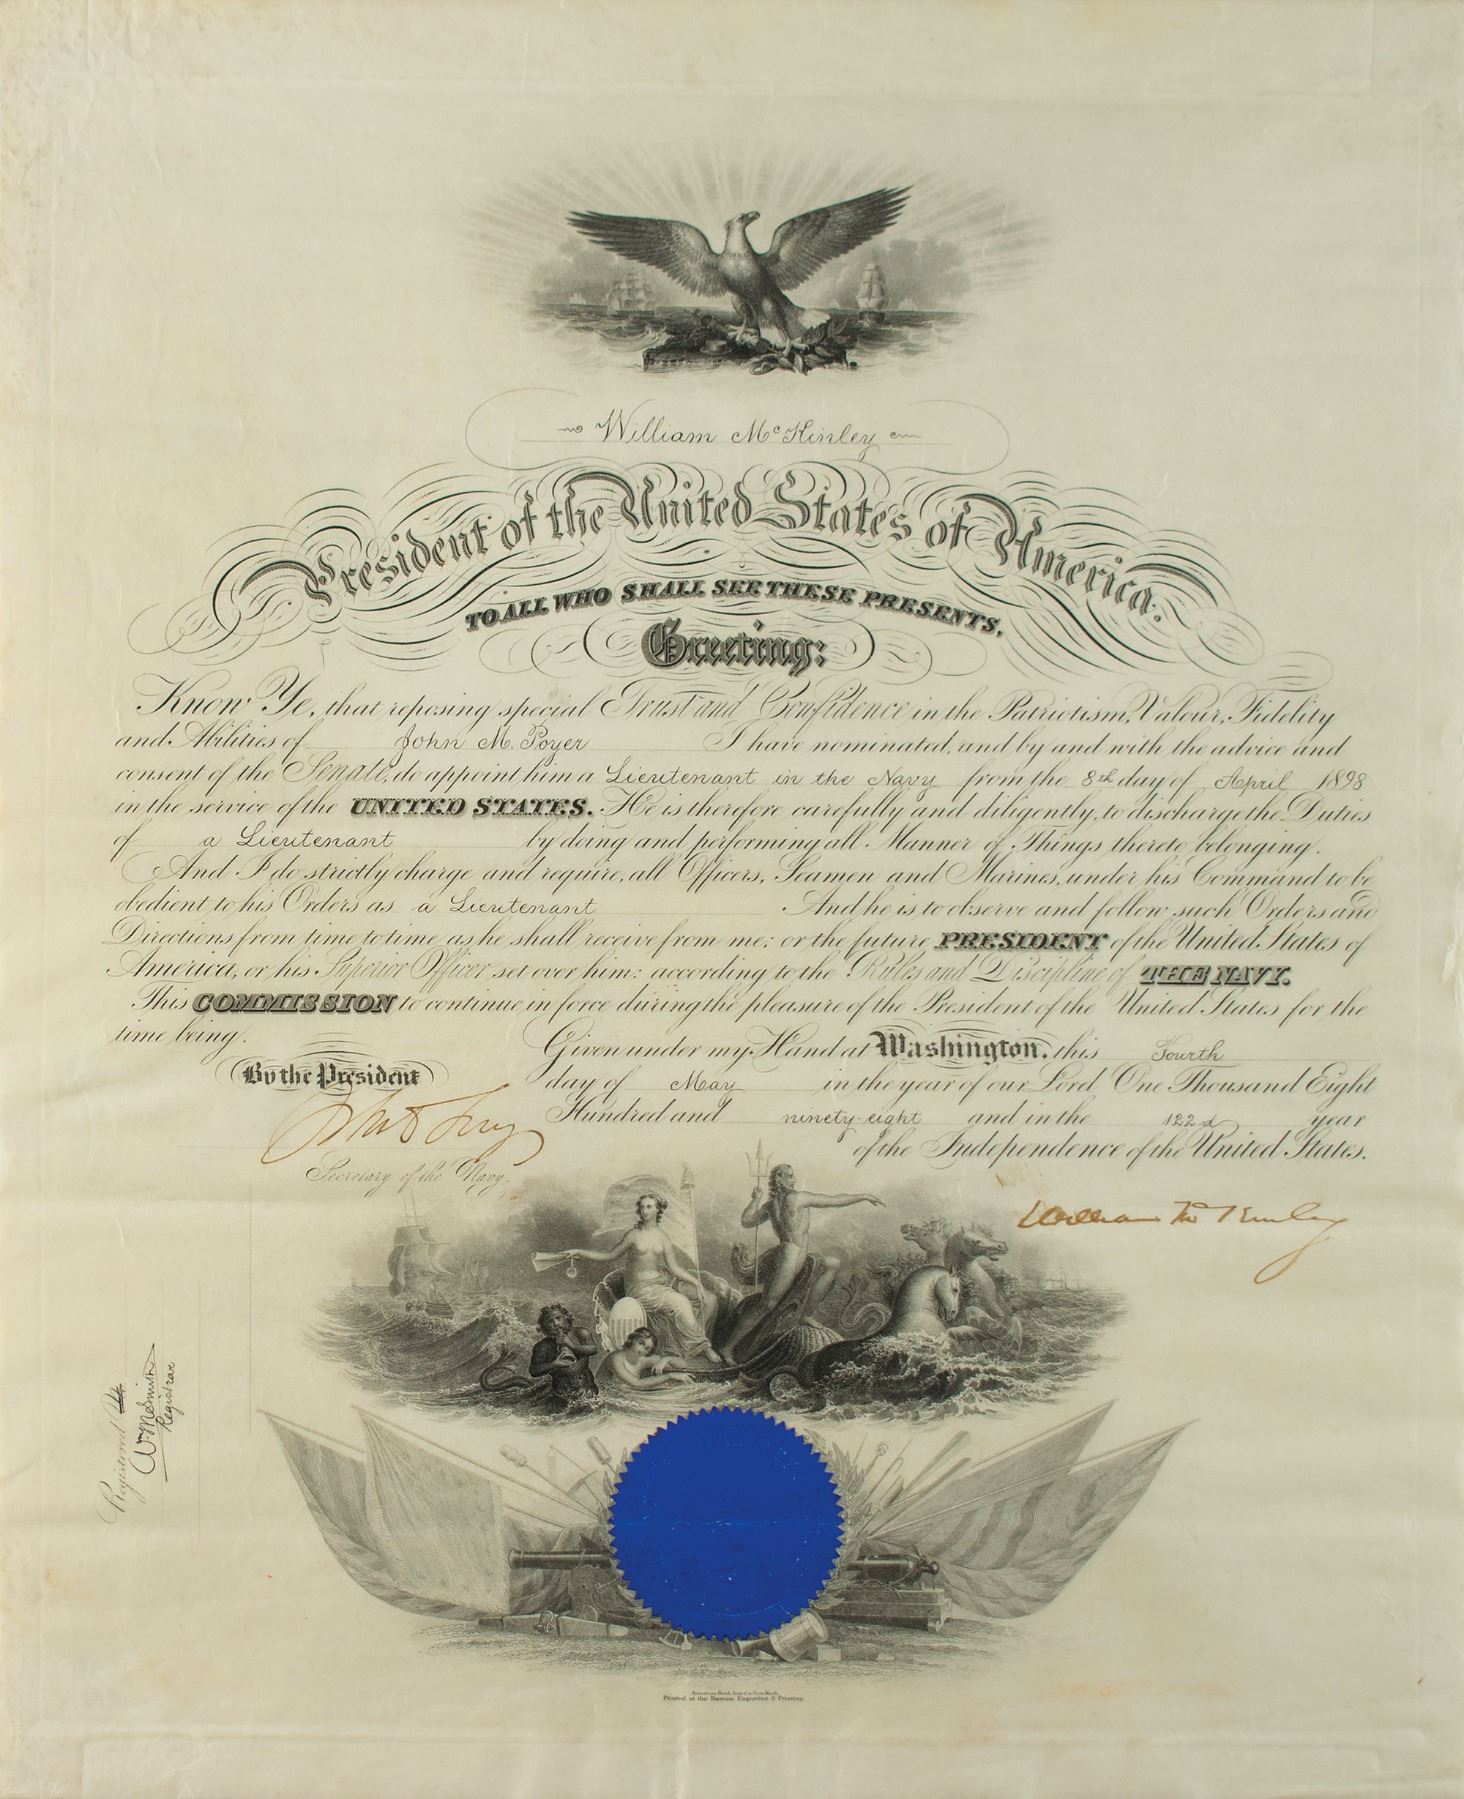 William McKinley
President of the United States of America.
TO ALL WHO SHALL SEE THESE PRESENTS,
Greeting:
Know Ye, that reposing special Trust and Confidence in the Patriotism, Valour, Fidelity
and Abilities of John M. Poyer I have nominated, and by and with the advice and
consent of the Senate, do appoint him a Lieutenant in the Navy from the 8th day of April 1898
in the service of the UNITED STATES. He is therefore carefully and diligently, to discharge the Duties
of a Lieutenant by doing and performing all Manner of Things thereto belonging.
And I do strictly charge and require, all Officers, Seamen and Marines, under his Command to be
obedient to his Orders as a Lieutenant And he is to observe and follow such Orders and
Directions from time to time as he shall receive from me: or the future PRESIDENT of the United States of
America, or his Superior Officer set over him: according to the Rules and Discipline of THE NAVY.
This COMMISSION to continue in force during the pleasure of the President of the United States for the
time being.
Given under my Hand at Washington, this Fourth
day of May in the year of our Lord One Thousand Eight
Hundred and ninety-eight and in the 122d year
of the Independence of the United States.
By the President
Secretary of the Navy.
William McKinley
Registered
Wm McSmith
Registrar
Printed at the Bureau, Engraving & Printing.